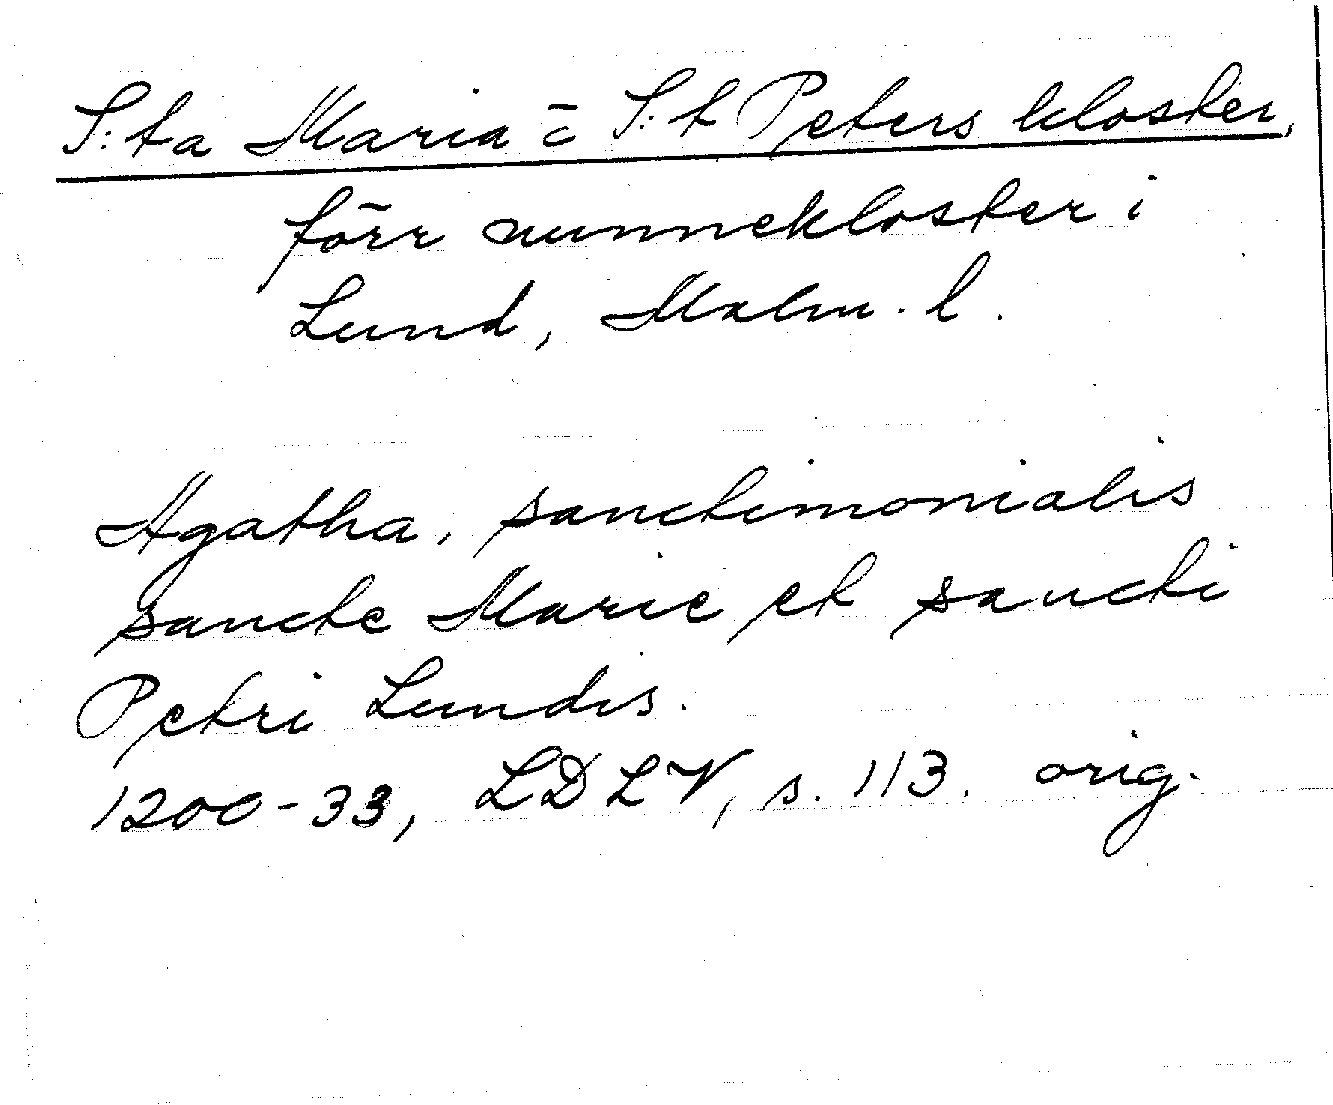 S:ta Maria o S:t Peters kloster,
förr nunnekloster i
Lund, Malm. l.
Agatha, sanctimonialis
sancte Marie et sancti
Petri Lundis.
1200-33, LDLV, s. 113. orig.